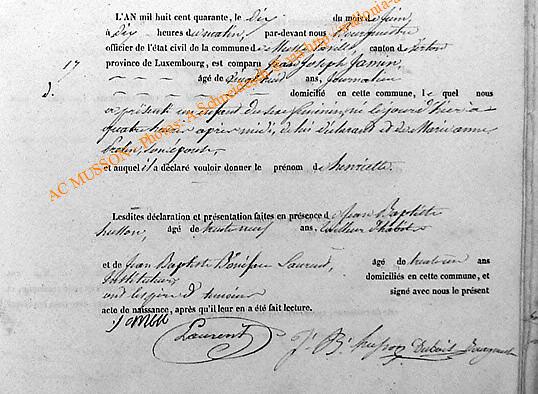 L'AN mil huit cent quarante, le dix du mois de juin,
à dix heures du matin, par-devant nous Bourgmestre
officier de l'état civil de la commune de Musson canton de Virton
17 province de Luxembourg, est comparu Jean Joseph Jamin,
âgé de ans, journalier
domicilié en cette commune, le quel nous
a présenté un enfant du sexe féminin, né le jour d'hier à
quatre heures après midi, de lui déclarant et de Marie anne
son épouse,
et auquel il a déclaré vouloir donner le prénom de henriette.
Lesdites déclaration et présentation faites en présence de Jean Baptiste
husson, âgé de trente neuf ans, tailleur d'habits
et de Jean Baptiste Boniface Laurent, âgé de ans
Instituteur domiciliés en cette commune, et
signé avec nous le présent
acte de naissance, après qu'il leur en a été fait lecture.
Jamin
Laurent J. B. husson Dubois Bourgmestre
AC MUSSON - Photos: A Schneider